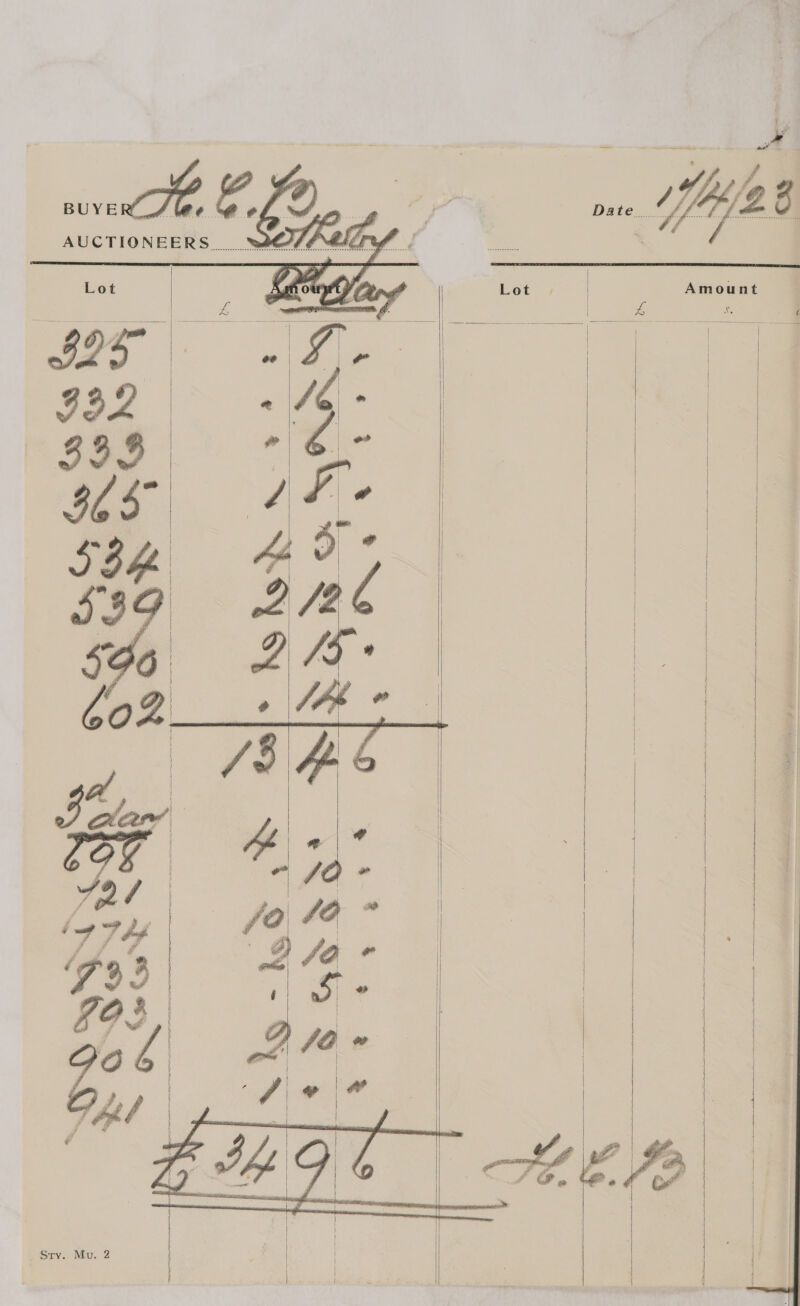 BUYER H. C. B. Date 17/4/23
AUCTIONEERS Sotheby
Lot Amount 2 Day Lot Amount
£ £ s.
325 " 8 -
332 " 16 -
333 " 6 -
365 1 8 -
534 4 5 -
539 2 12 6
596 2 15 -
602 " 14 -
13 4 6
3d day
708 4 - -
721 - 10 -
774 10 10 -
833 2 10 -
893 - 5 -
906 2 10 -
941 1 - -
£ 34 9 6 H. C. B
Sty. Mu. 2